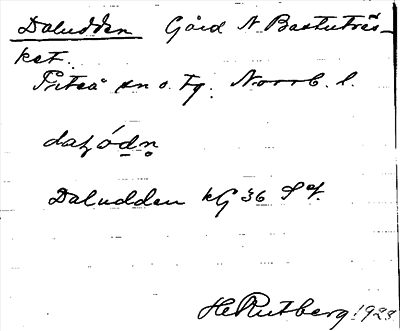 Daludden Gård N Bastuträs-
ket.
Piteå sn o. tg. Norrb. l.
Daludden kG 36 Sf.
H Rutberg 1923